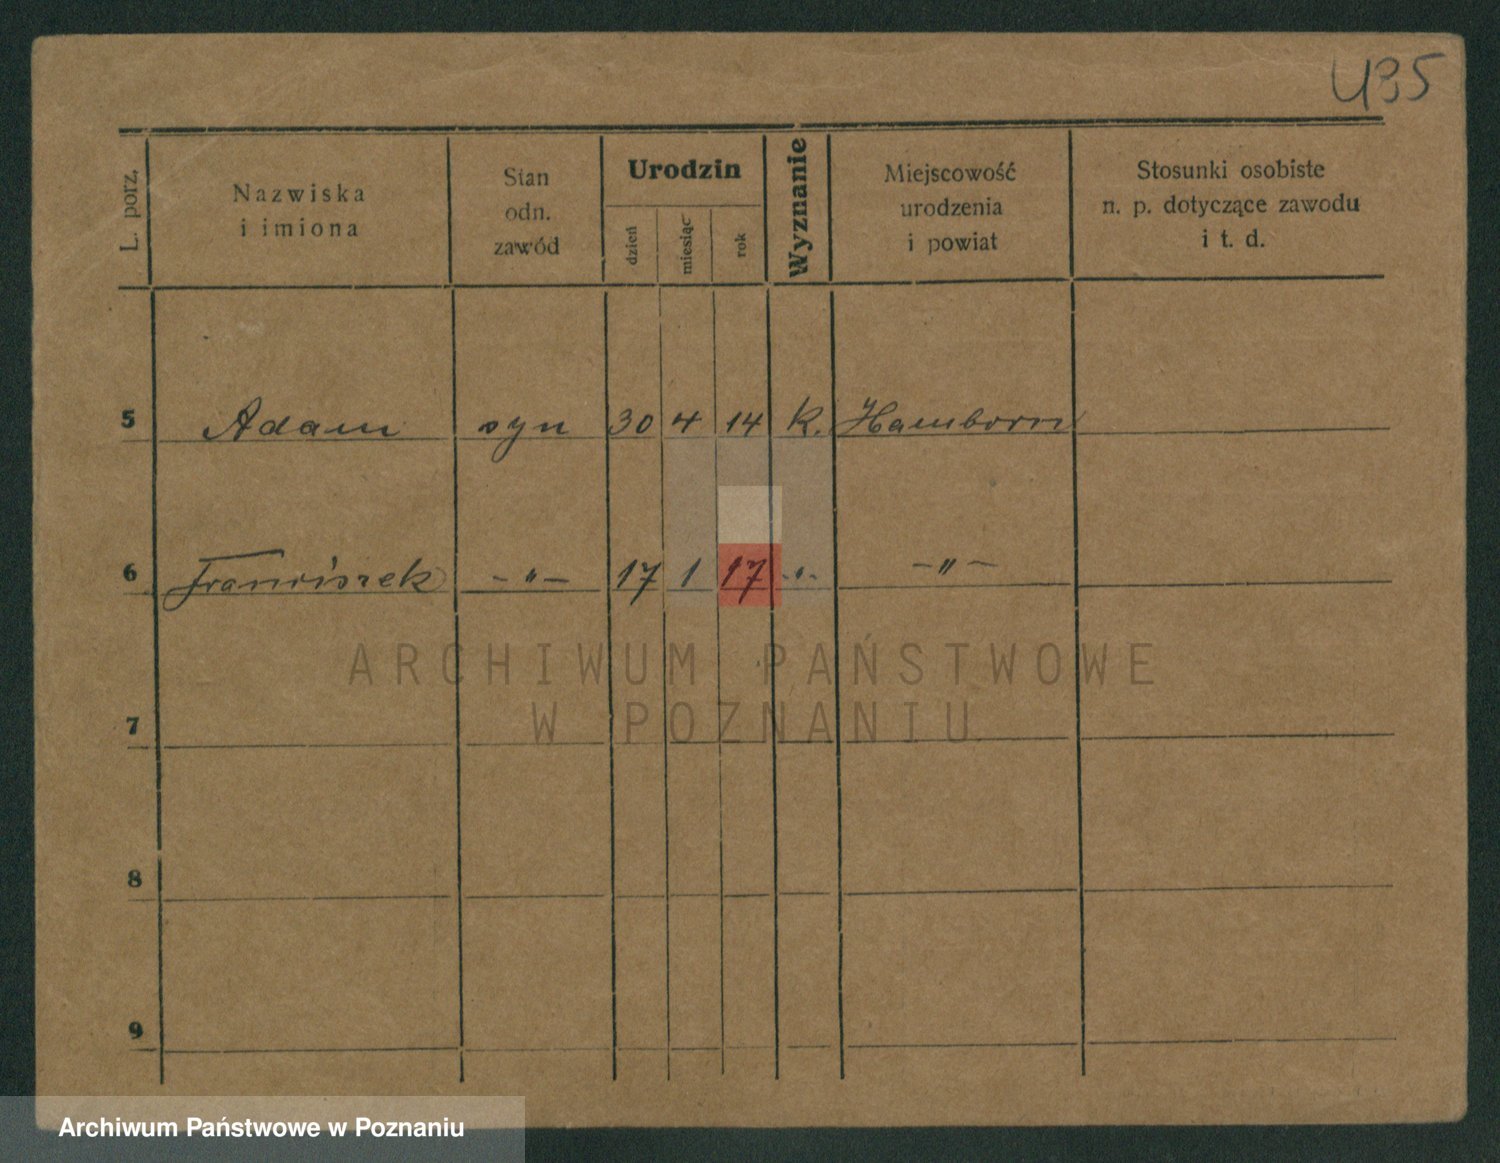 435
L. porz.
Nazwiska
i imiona
Stan
odn.
zawód
Urodzin
dzień
miesiąc
rok
Wyznanie
Miejscowość
urodzenia
i powiat
Stosunki osobiste
n. p. dotyczące zawodu
i t. d.
5 Adam syn 30 4 14 k. Hamborn
6 Franciszek -"- 17 1 17 -"- -"-
ARCHIWUM PAŃSTWOWE
W POZNANIU
7
8
9
Archiwum Państwowe w Poznaniu